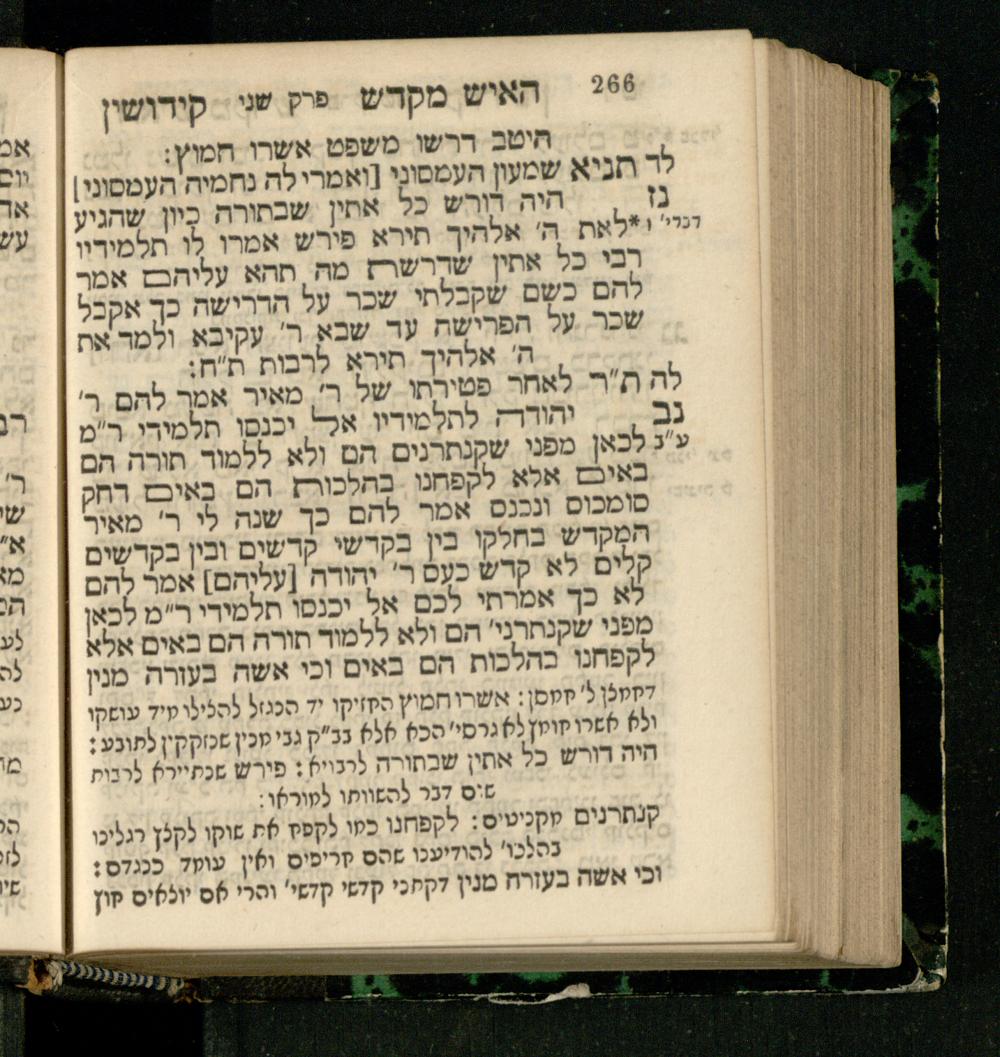 266 האיש מקדש פרק שני קידושין
היטב דרשו משפט אשרו חמוץ:
לד תניא שמעון העמסוני [ואמרי לה נחמיה העמסוני]
נז היה דורש כל אתין שבתורה כיון שהגיע
דברי' ו *לאת ה' אלהיך תירא פירש אמרו לו תלמידיו
רבי כל אתין שדרשת מה תהא עליהם אמר
להם כשם שקבלתי שכר על הדרישה כך אקבל
שכר על הפרישה עד שבא ר' עקיבא ולמד את
ה' אלהיך תירא לרבות ת"ח:
לה ת"ר לאחר פטירתו של ר' מאיר אמר להם ר'
נב יהודה לתלמידיו אל יכנסו תלמידי ר"מ
ע"ב לכאן מפני שקנתרנים הם ולא ללמוד תורה הם
באים אלא לקפחנו בהלכות הם באים דחק
סומכוס ונכנס אמר להם כך שנה לי ר' מאיר
המקדש בחלקו בין בקדשי קדשים ובין בקדשים
קלים לא קדש כעס ר' יהודה [עליהם] אמר להם
לא כך אמרתי לכם אל יכנסו תלמידי ר"מ לכאן
מפני שקנתרני' הם ולא ללמוד תורה הם באים אלא
לקפחנו בהלכות הם באים וכי אשה בעזרה מנין
דחמצן ל' חמסן: אשרו חמוץ החזיקו יד הנגזל להצילו מיד עושקו
ולא אשרו חומץ לא גרסי' הכא אלא בב"ק גבי מבין שנזקקין לתובע:
היה דורש כל אתין שבתורה לרבויא: פירש שנתיירא לרבות
שום דבר להשוותו למוראו:
קנתרנים מקניטים: לקפחנו כמו לקפח את שוקו לקצץ רגלינו
בהלכו' להודיענו שהם חריפים ואין עומד כנגדם:
וכי אשה בעזרה מנין דקתני קדשי קדשי' והרי אם יוצאים חוץ